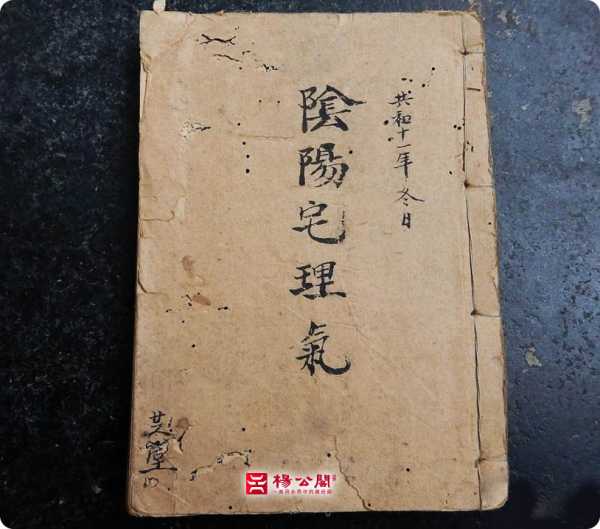 共和十一年冬日
陰陽宅理氣
楊公閣